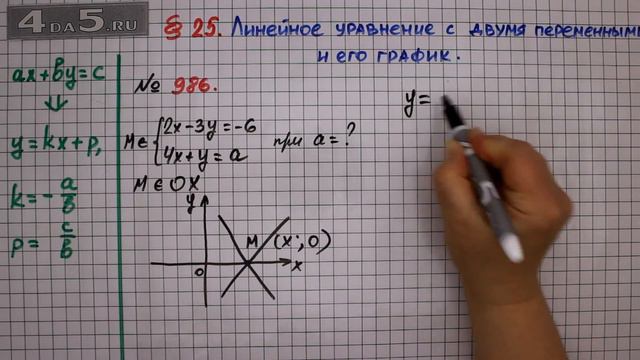 4DA5.RU
§ 25. Линейное уравнение с двумя переменными
и его график.
ax+by=c
↓
y=kx+p,
k=-a/b
p=c/b
№ 986.
M∈{2x-3y=-6
4x+y=a при a=?
M∈OX
y
M(x;0)
0
x
y=